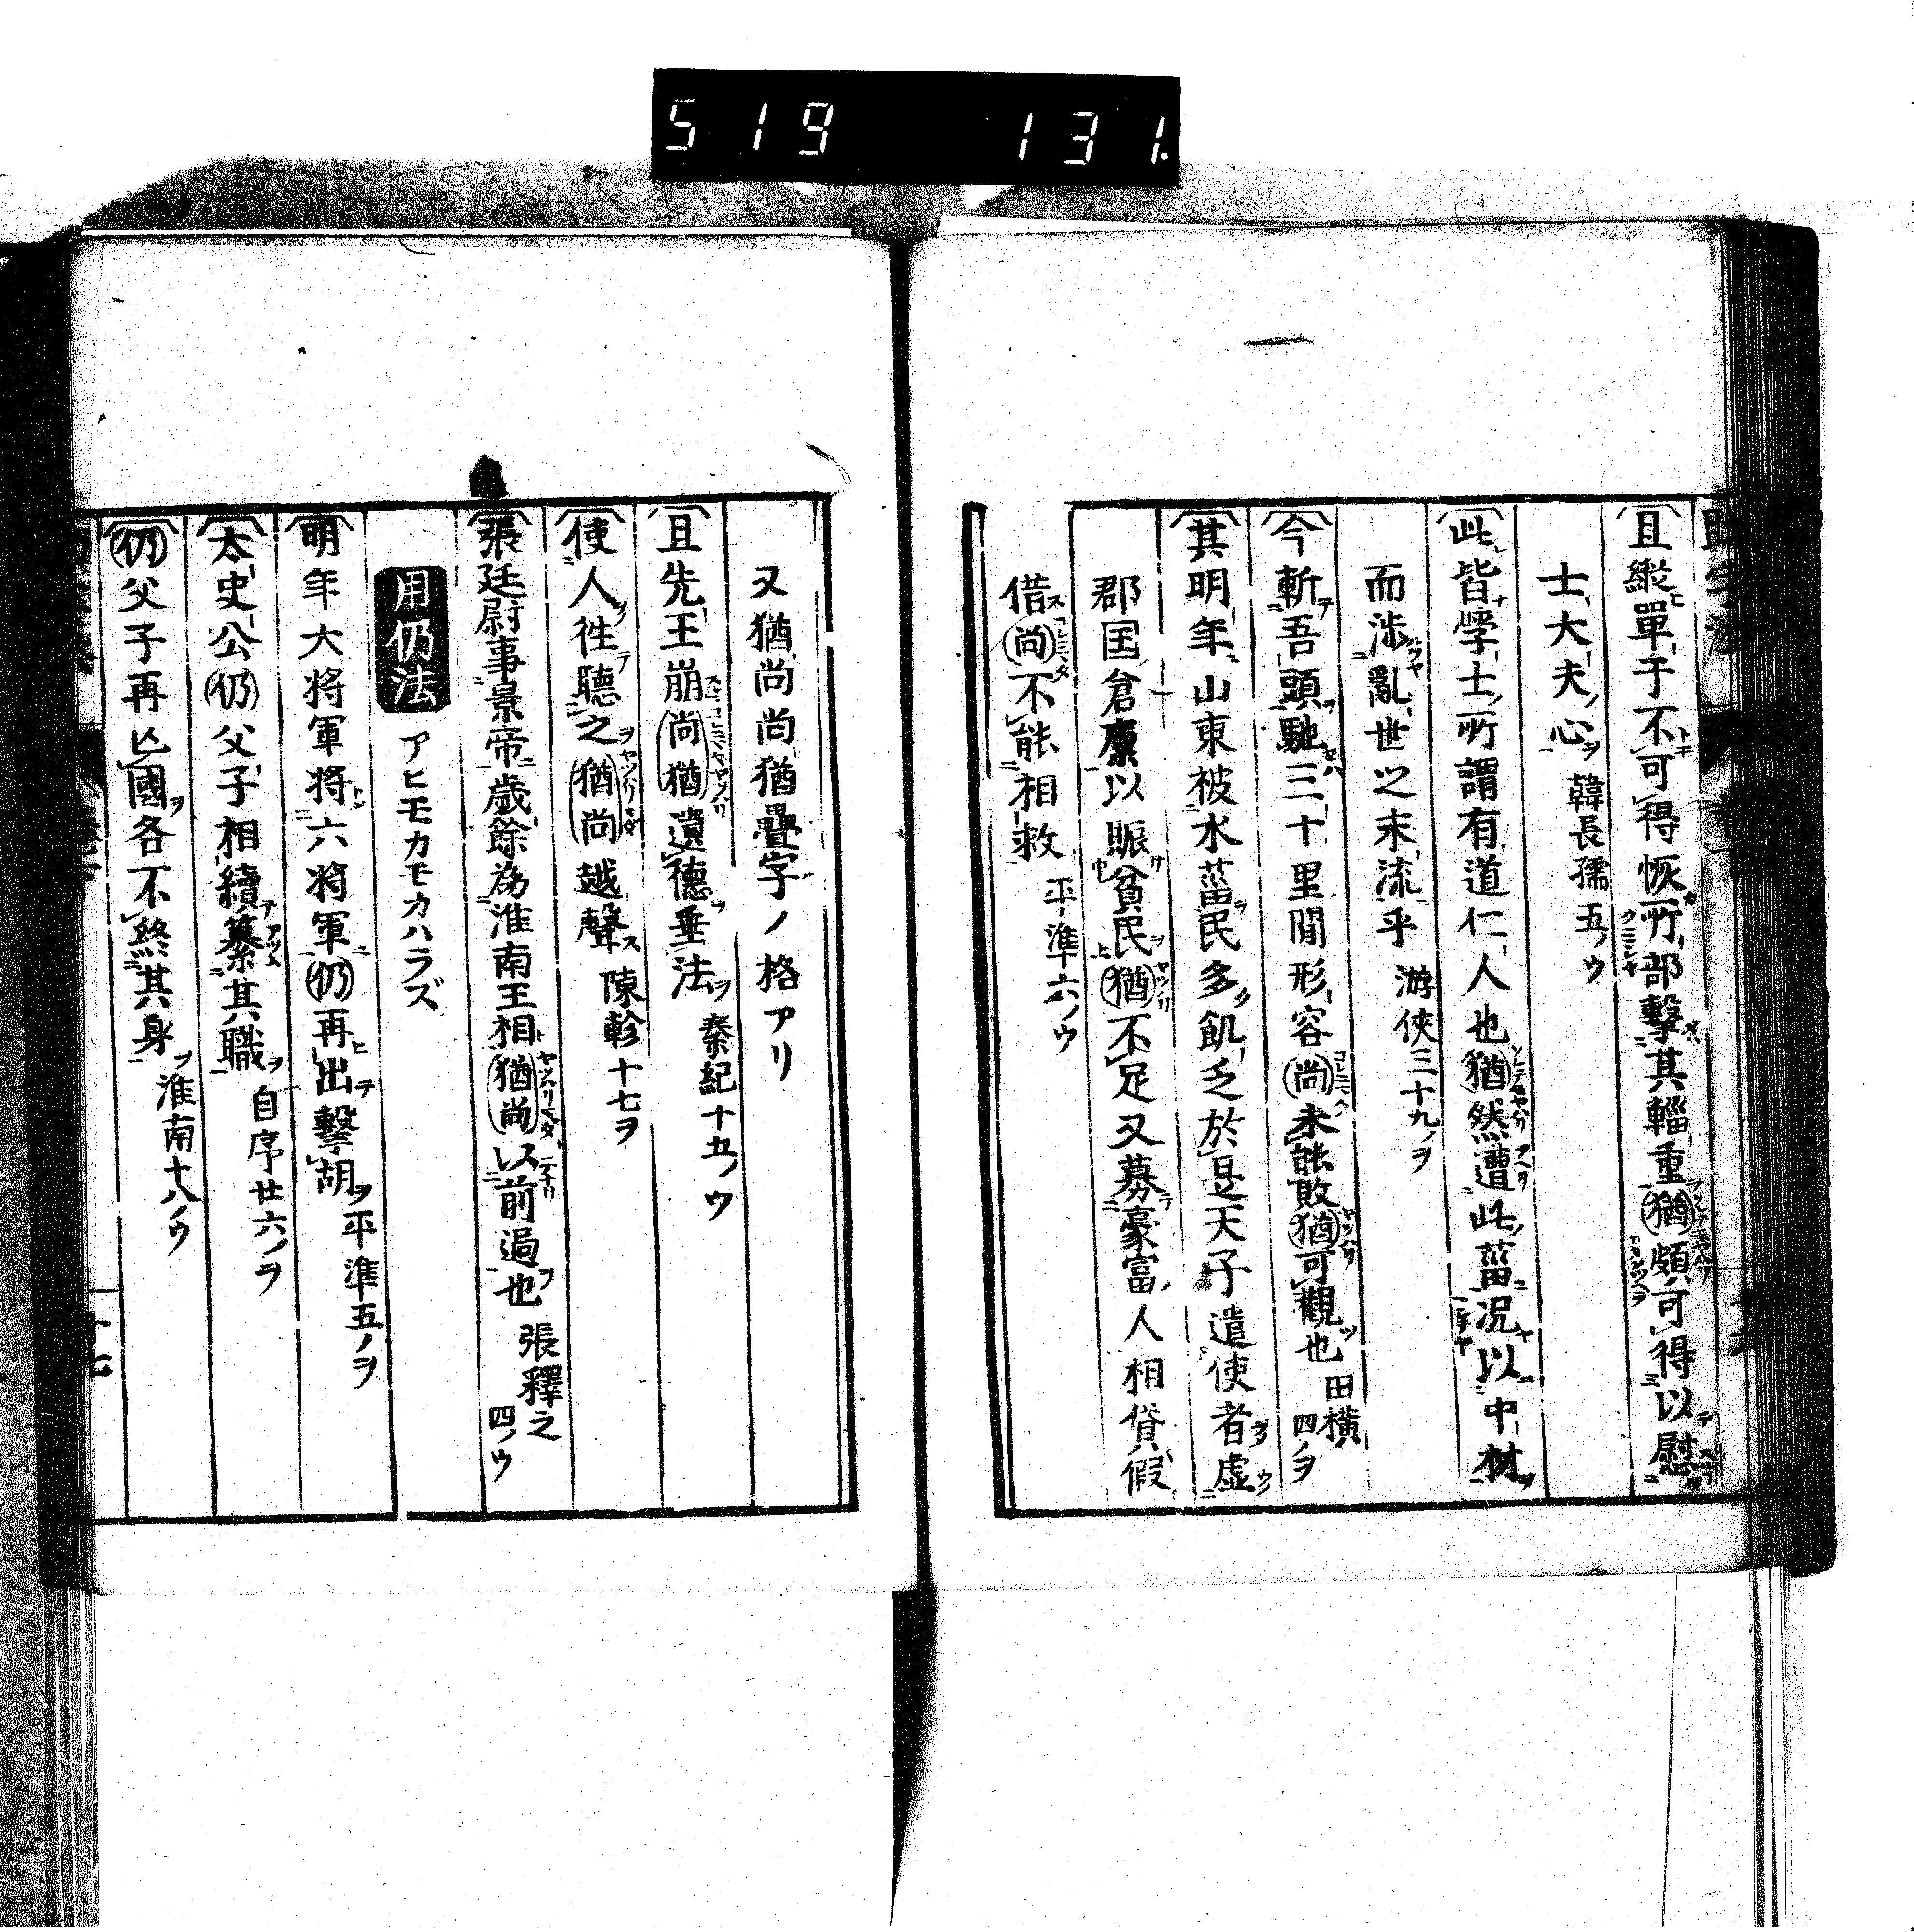 519 131.
且縦單于不可得恢所部擊其輜重猶頗可得以慰
士大夫心 韓長孺五ノウ
此皆學士所謂有道仁人也猶然遭此菑况以中材
而涉亂世之末流乎 游侠三十九ノヲ
今斬吾頭馳三十里間形容尚未能敗猶可觀也 田横四ノヲ
其明年山東被水菑民多飢乏於是天子遣使者虚
郡国倉廩以賑貧民猶不足又募豪富人相貸假
借尚不能相救 平準六ノウ
又猶尚尚猶疊字ノ格アリ
且先王崩尚猶遺德垂法 秦紀十五ノウ
使人徃聴之猶尚越聲 陳軫十七ヲ
張廷尉事景帝歳餘為淮南王相猶尚以前過也 張釋之四ノウ
用仍法 アヒモカモカハラズ
明年大将軍将六将軍仍再出擊胡 平準五ノヲ
太史公仍父子相續纂其職 自序廿六ノヲ
仍父子再亡國各不終其身 淮南十八ノウ